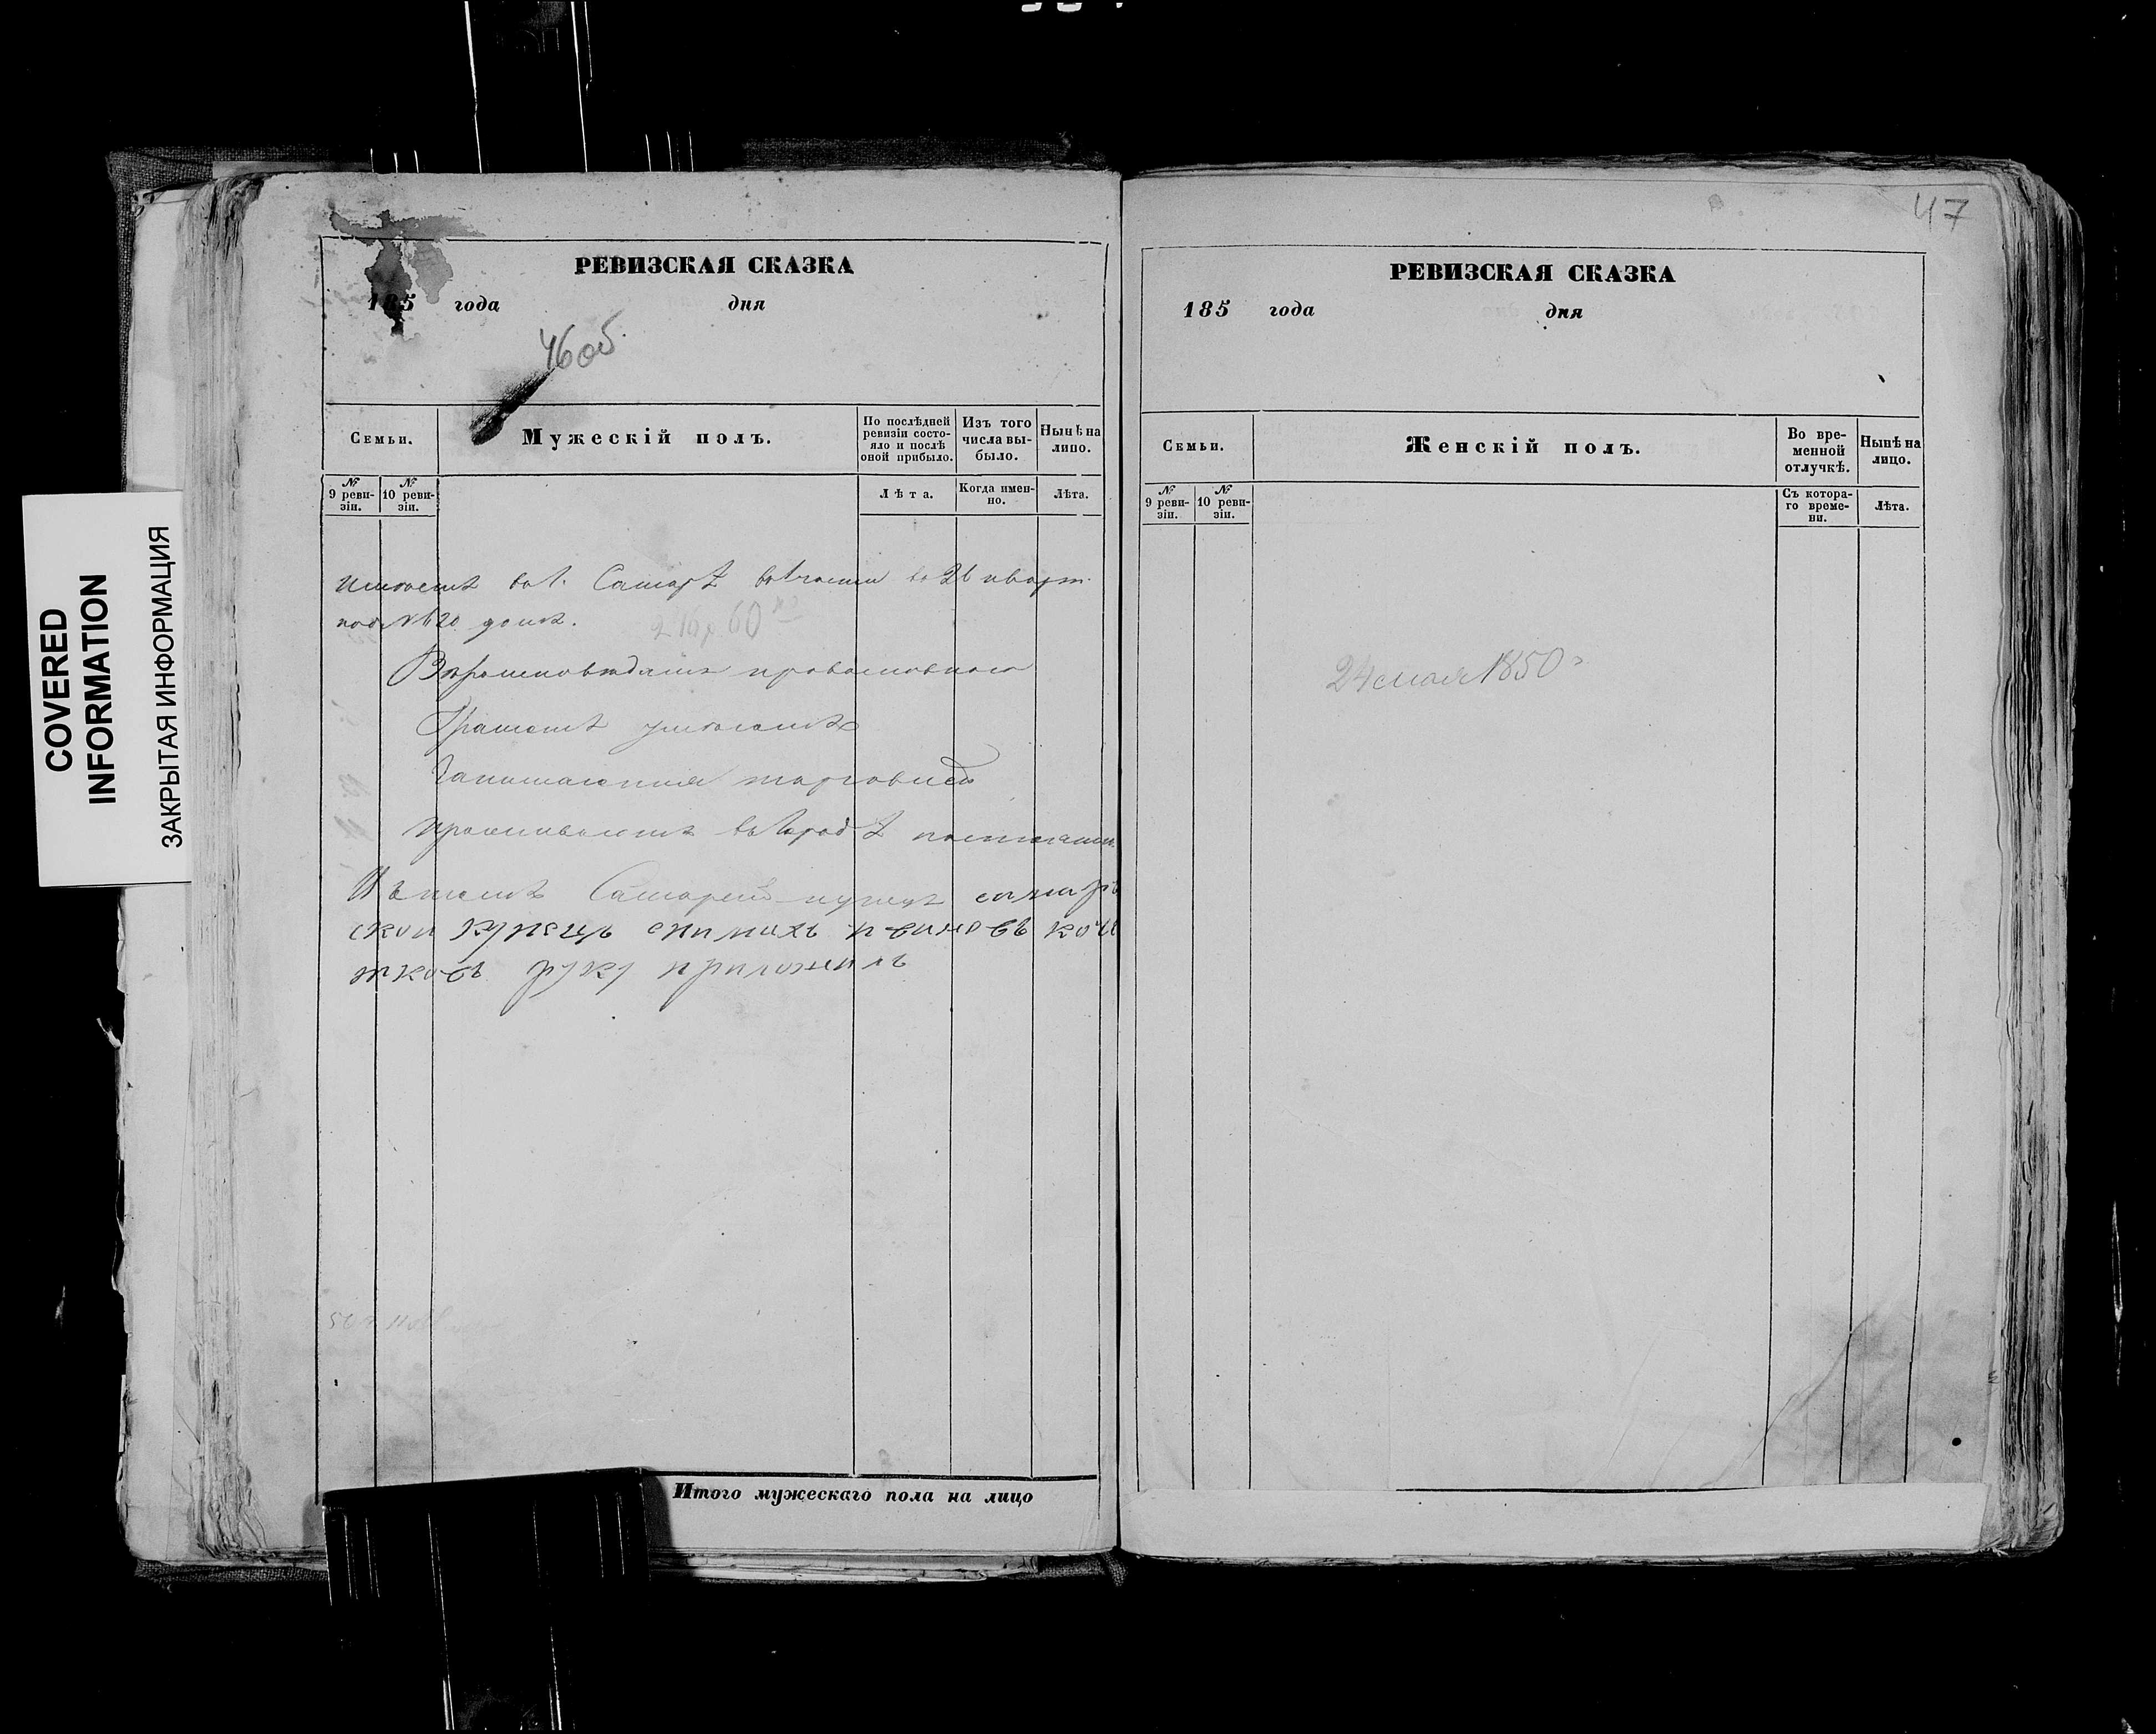 COVERED
INFORMATION
ЗАКРЫТАЯ ИНФОРМАЦИЯ
РЕВИЗСКАЯ СКАЗКА
185 года дня
46об.
Семьи.
Мужескій полъ.
По послѣдней
ревизіи состо-
яло и послѣ
оной прибыло.
Изъ того
числа вы-
было.
Нынѣ на
лицо.
№
9 реви-
зіи.
№
10 реви-
зіи.
Лѣта.
Когда имен-
но.
Лѣта.
имѣетъ въ г. Самарѣ в 1 части в 26 кварт.
под № 620 домъ.
216 р 60
Вѣроисповѣдания православнаго
Грамотѣ умѣетъ
Занимается торговлей
проживаетъ въ городѣ
Къ Самарской купецъ самар
ской купецъ ивановъ
руку приложилъ
Итого мужескаго пола на лицо
47
РЕВИЗСКАЯ СКАЗКА
185 года дня
Семьи.
Женскій полъ.
Во вре-
менной
отлучкѣ.
Нынѣ на
лицо.
№
9 реви-
зіи.
№
10 реви-
зіи.
Съ котора-
го време-
ни.
Лѣта.
24 мая 1850